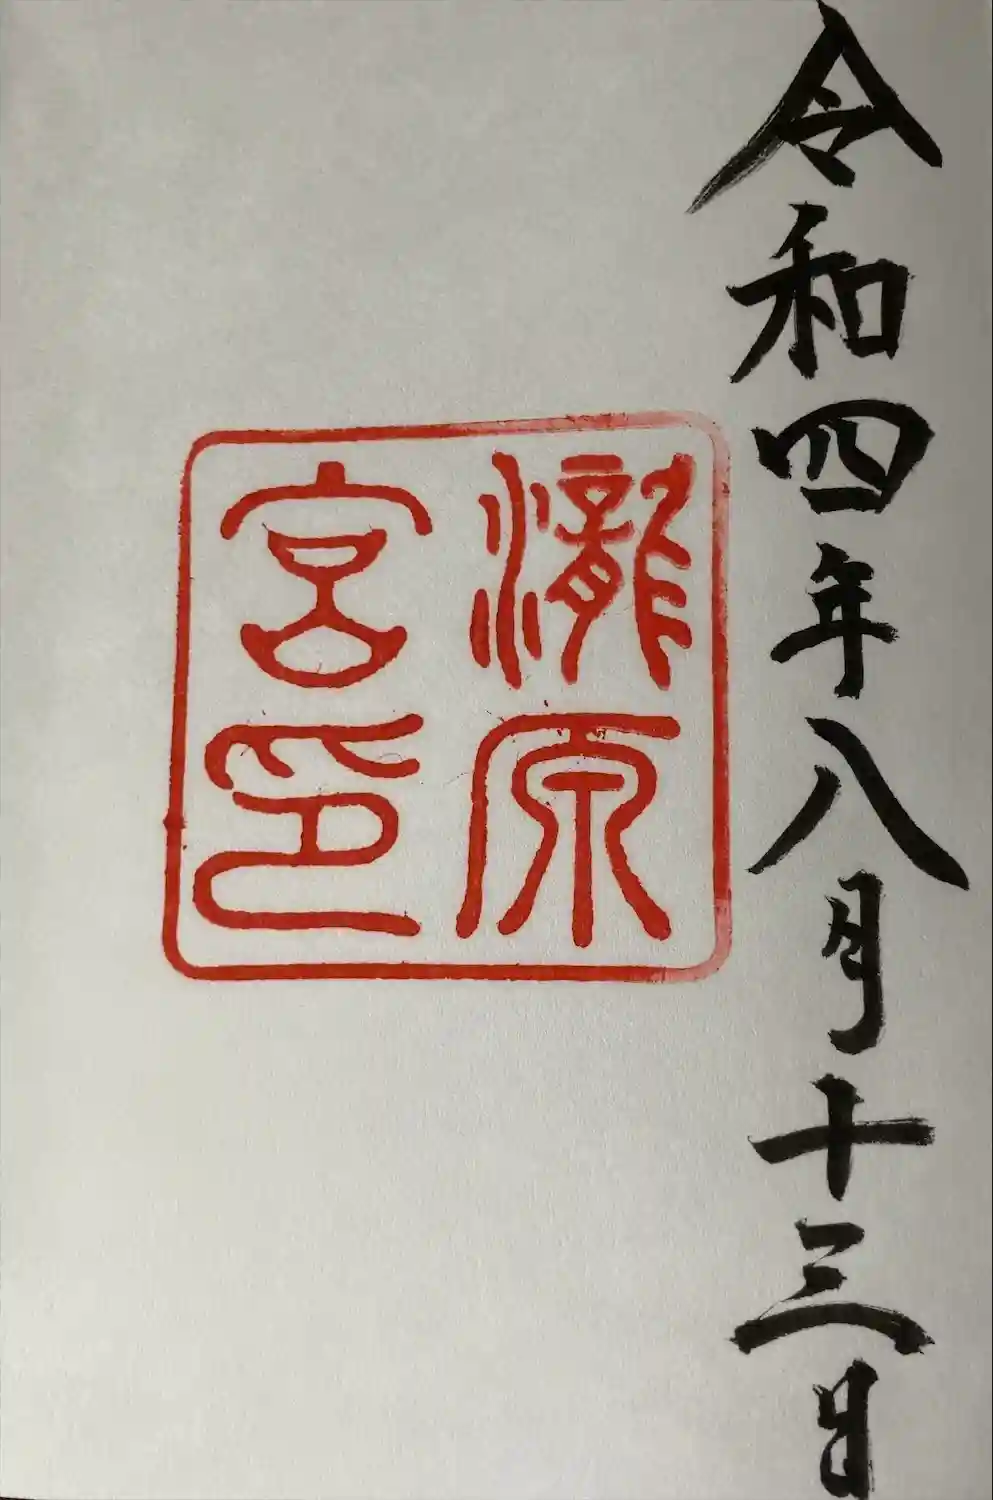 令和四年八月十三日
瀧原
宮印